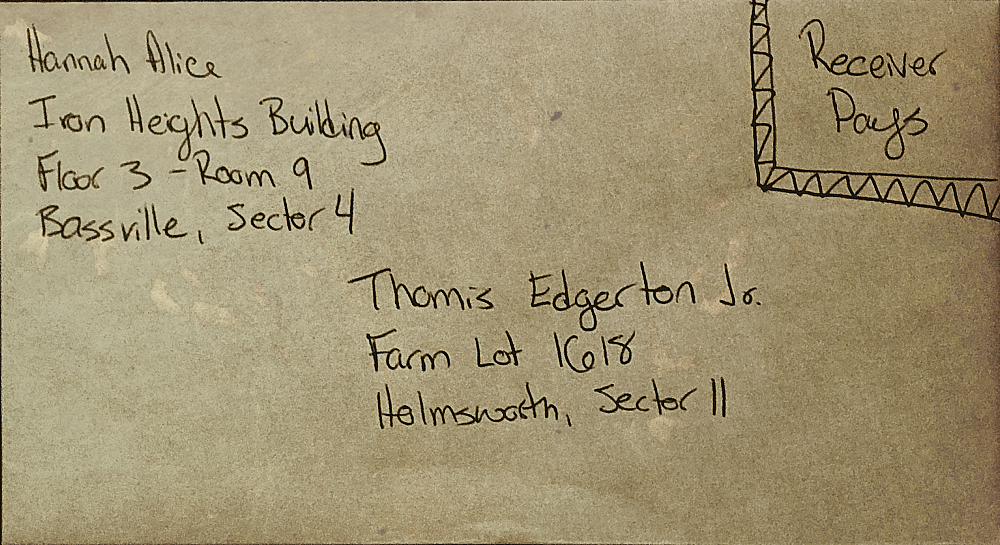 Hannah Alice
Iron Heights Building
Floor 3 - Room 9
Bassville, Sector 4
Receiver
Pays
Thomis Edgerton Jr.
Farm Lot 1618
Holmsworth, Sector 11